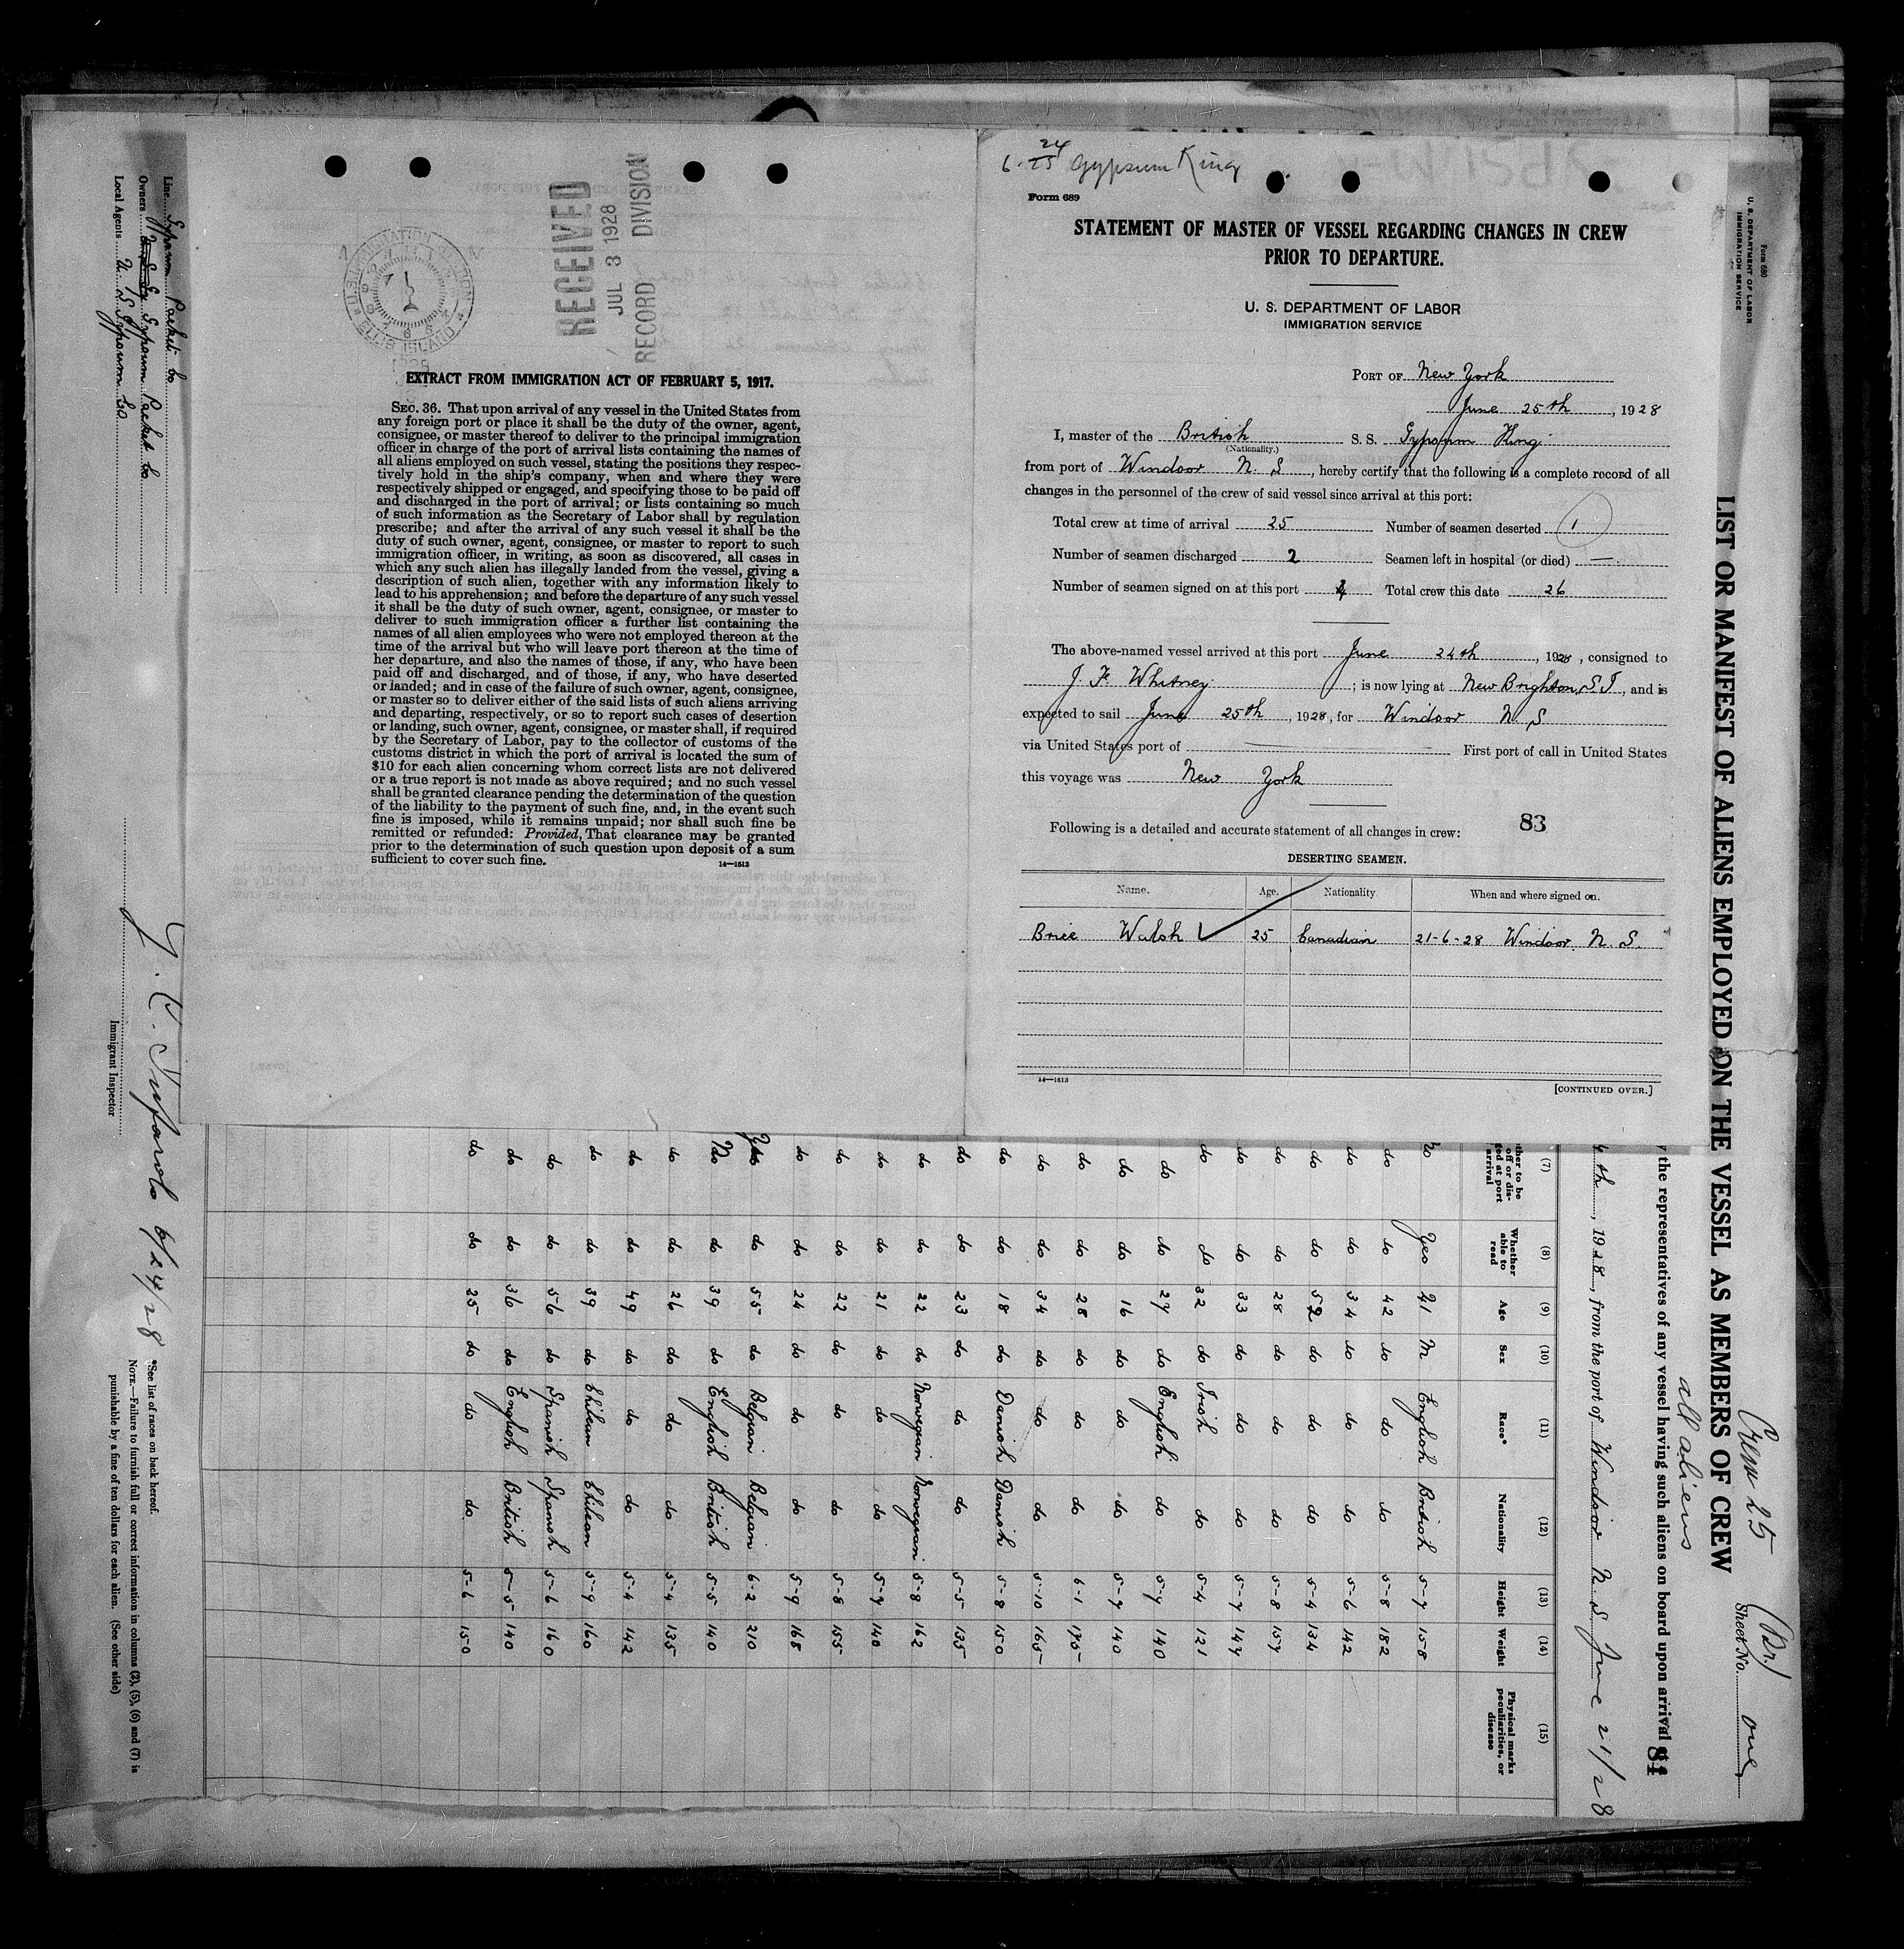 6-24
25 Gypsum King
Form 689
STATEMENT OF MASTER OF VESSEL REGARDING CHANGES IN CREW
PRIOR TO DEPARTURE.
U. S. DEPARTMENT OF LABOR
IMMIGRATION SERVICE
PORT OF New York
June 25th, 1928
I, master of the British S. S. Gypsum King
(Nationality.)
from port of Windsor N. S, hereby certify that the following is a complete record of all
changes in the personnel of the crew of said vessel since arrival at this port:
Total crew at time of arrival 25 Number of seamen deserted 1
Number of seamen discharged 2 Seamen left in hospital (or died) —
Number of seamen signed on at this port Total crew this date 26
The above-named vessel arrived at this port June 24th, 1928, consigned to
J. F. Whitney; is now lying at New Brighton, S I, and is
expected to sail June 25th, 1928, for Windsor N. S
via United States port of — First port of call in United States
this voyage was New York
Following is a detailed and accurate statement of all changes in crew: 83
DESERTING SEAMEN.
Name. Age. Nationality When and where signed on.
Brice Walsh 25 Canadian 21-6-28 Windsor. N. S.
14—1613
[CONTINUED OVER.]
RECEIVED
JUL 3 1928
RECORD DIVISION
U.S. IMMIGRATION STATION
ELLIS ISLAND
EXTRACT FROM IMMIGRATION ACT OF FEBRUARY 5, 1917.
SEC. 36. That upon arrival of any vessel in the United States from
any foreign port or place it shall be the duty of the owner, agent,
consignee, or master thereof to deliver to the principal immigration
officer in charge of the port of arrival lists containing the names of
all aliens employed on such vessel, stating the positions they respec-
tively hold in the ship's company, when and where they were
respectively shipped or engaged, and specifying those to be paid off
and discharged in the port of arrival; or lists containing so much
of such information as the Secretary of Labor shall by regulation
prescribe; and after the arrival of any such vessel it shall be the
duty of such owner, agent, consignee, or master to report to such
immigration officer, in writing, as soon as discovered, all cases in
which any such alien has illegally landed from the vessel, giving a
description of such alien, together with any information likely to
lead to his apprehension; and before the departure of any such vessel
it shall be the duty of such owner, agent, consignee, or master to
deliver to such immigration officer a further list containing the
names of all alien employees who were not employed thereon at the
time of the arrival but who will leave port thereon at the time of
her departure, and also the names of those, if any, who have been
paid off and discharged, and of those, if any, who have deserted
or landed; and in case of the failure of such owner, agent, consignee,
or master so to deliver either of the said lists of such aliens arriving
and departing, respectively, or so to report such cases of desertion
or landing, such owner, agent, consignee, or master shall, if required
by the Secretary of Labor, pay to the collector of customs of the
customs district in which the port of arrival is located the sum of
$10 for each alien concerning whom correct lists are not delivered
or a true report is not made as above required; and no such vessel
shall be granted clearance pending the determination of the question
of the liability to the payment of such fine, and, in the event such
fine is imposed, while it remains unpaid; nor shall such fine be
remitted or refunded: Provided, That clearance may be granted
prior to the determination of such question upon deposit of a sum
sufficient to cover such fine.
14—1613
Form 680
U. S. DEPARTMENT OF LABOR
IMMIGRATION SERVICE
Crew 25 (Br.)
all aliens
Sheet No. one
LIST OR MANIFEST OF ALIENS EMPLOYED ON THE VESSEL AS MEMBERS OF CREW
the representatives of any vessel having such aliens on board upon arrival
84
4th, 1928, from the port of Windsor N. S June 21/28
(7) (8) (9) (10) (11) (12) (13) (14) (15)
Whether able to read Age Sex Race* Nationality Height Weight Physical marks, peculiarities, or disease
No Yes 21 M English British 5-7 158
do do 42 do do do 5-8 182
do 34 do do do 5-6 142
do 52 do do do 5-4 134
do 28 do do do 5-8 157
do do 33 do do do 5-7 147
do do 32 do Irish do 5-4 121
do do 27 do English do 5-7 140
do do 16 do do do 5-7 140
do do 28 do do do 6-1 175
do do 34 do do do 5-10 165
do do 18 do Danish Danish 5-8 150
do do 23 do do do 5-5 135
do do 22 do Norwegian Norwegian 5-8 162
do do 21 do do do 5-7 140
do do 22 do do do 5-8 155
do do 24 do do do 5-9 168
Yes do 55 do Belgian Belgian 6-2 210
No do 39 do English British 5-5 140
do do 26 do do do 5-4 135
do do 49 do do do 5-4 142
do do 39 do Chilean Chilean 5-9 160
do do 56 do Spanish Spanish 5-6 160
do do 36 do English British 5-5 140
do do 25 do do do 5-6 150
Line Gypsum Packet Co
Owners Gypsum Packet Co
Local Agents U S Gypsum Co
6/24/28
Immigrant Inspector
*See list of races on back hereof.
NOTE.—Failure to furnish full or correct information in columns (2), (5), (6) and (7) is
punishable by a fine of ten dollars for each alien. (See other side)